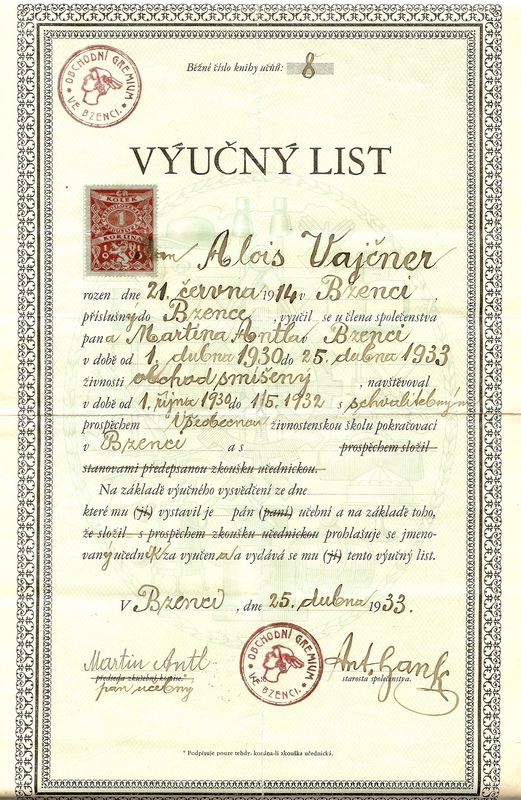 OBCHODNÍ GREMIUM
VE BZENCI.
Běžné číslo knihy učňů: 8
VÝUČNÝ LIST
KOLEK
1
KORUNA
Pan Alois Vajčner
rozen dne 21. června 1914 v Bzenci,
příslušný do Bzence, vyučil se u člena společenstva
pana Martina Antla v Bzenci
v době od 1. dubna 1930 do 25. dubna 1933
živnosti obchod smíšený, navštěvoval
v době od 1. října 1930 do 1/5. 1932 s schvalitebným
prospěchem všeobecnou živnostenskou školu pokračovací
v Bzenci a s prospěchem složil
stanovami předepsanou zkoušku učednickou.
Na základě výučného vysvědčení ze dne
které mu (jí) vystavil je pán (paní) učební a na základě toho,
že složil s prospěchem zkoušku učednickou prohlašuje se jmeno-
vaný učedník za vyučena a vydává se mu (jí) tento výučný list.
V Bzenci, dne 25. dubna 1933.
Martin Antl
předseda zkušební komise.*
pán učebný
OBCHODNÍ GREMIUM
VE BZENCI.
Ant. Hanák
starosta společenstva.
* Podpisuje pouze tehdy, konána-li zkouška učednická.